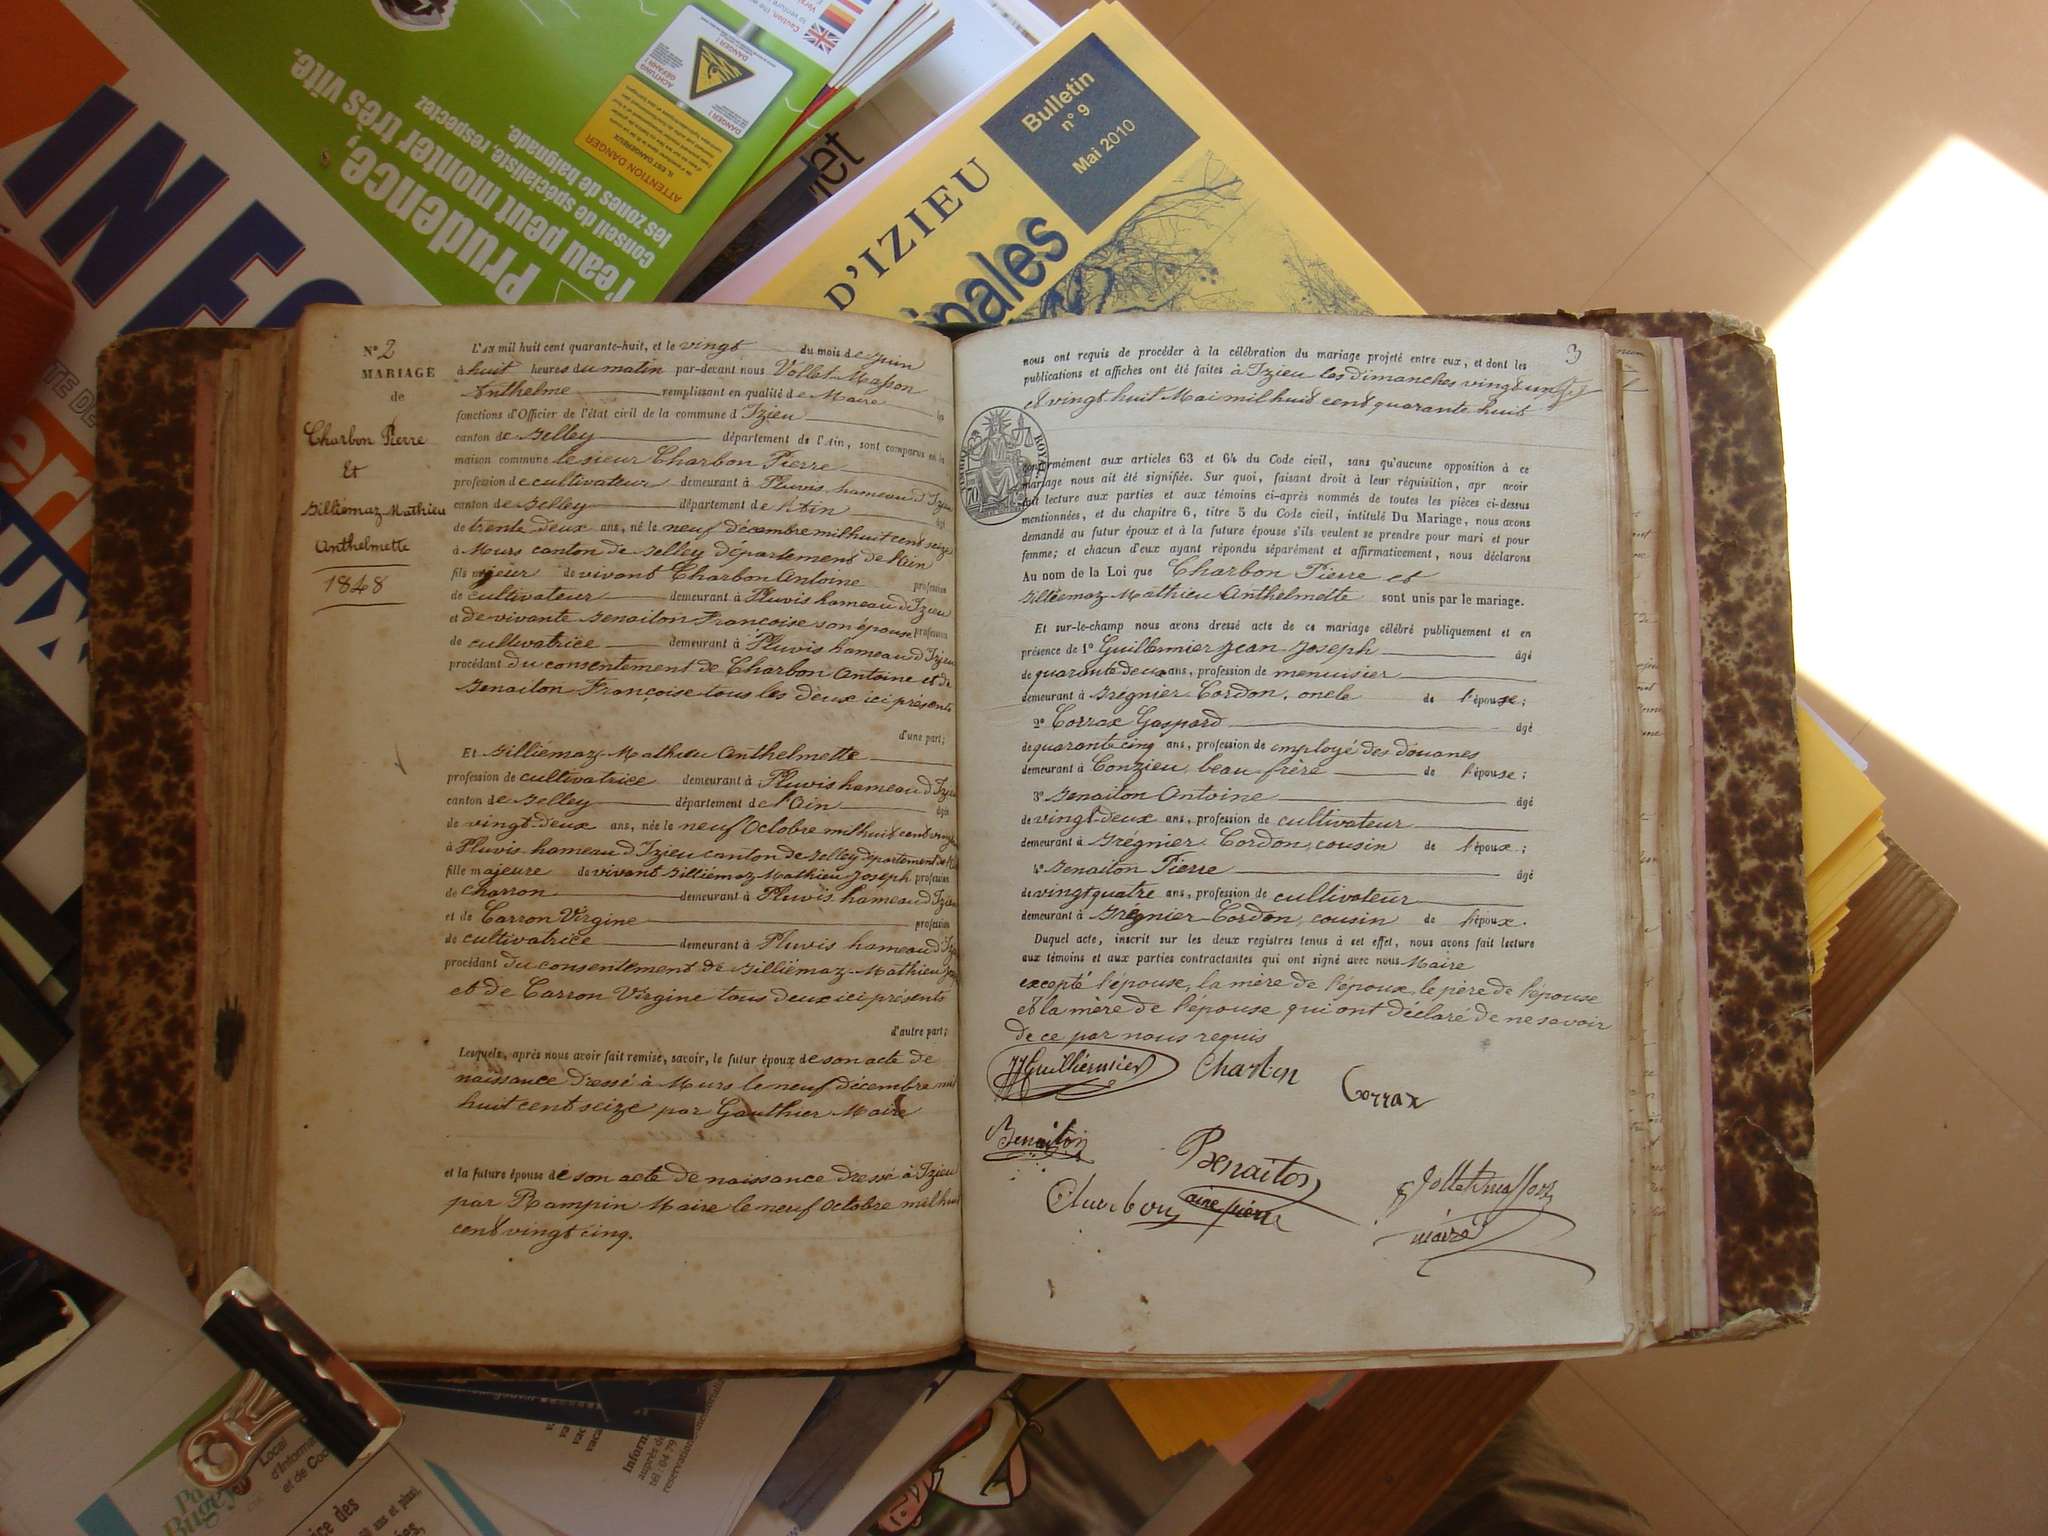 INFO
Prudence,
l'eau peut monter très vite.
Conseil de spécialiste, respectez
les zones de baignade.
ATTENTION DANGER
DANGER !
ACHTUNG GEFAHR !
DANGER !
Bulletin
n° 9
Mai 2010
D'IZIEU
ipales
N° 2
MARIAGE
de
Charbon Pierre
Et
Billiémaz Mathieu
Anthelmette
1848
L'AN mil huit cent quarante-huit, et le vingt du mois de Juin
à huit heures du matin par-devant nous Vollet-Masson
Anthelme remplissant en qualité de Maire les
fonctions d'Officier de l'état civil de la commune d'Izieu
canton de Belley département de l'Ain, sont comparus en la
maison commune le sieur Charbon Pierre
profession de cultivateur demeurant à Pluvis hameau d'Izieu
canton de Belley département de l'Ain âgé
de trente deux ans, né le neuf décembre mil huit cent seize
à Murs canton de Belley département de l'Ain
fils majeur de vivant Charbon Antoine profession
de cultivateur demeurant à Pluvis hameau d'Izieu
et de vivante Benaiton Françoise son épouse profession
de cultivatrice demeurant à Pluvis hameau d'Izieu
procédant du consentement de Charbon Antoine et de
Benaiton Françoise tous les deux ici présents
d'une part;
Et Billiémaz Mathieu Anthelmette
profession de cultivatrice demeurant à Pluvis hameau d'Izieu
canton de Belley département de l'Ain âgée
de vingt-deux ans, née le neuf Octobre mil huit cent vingt
à Pluvis hameau d'Izieu canton de Belley département de l'Ain
fille majeure de vivant Billiémaz Mathieu Joseph profession
de charron demeurant à Pluvis hameau d'Izieu
et de Carron Virgine profession
de cultivatrice demeurant à Pluvis hameau d'Izieu
procédant du consentement de Billiémaz Mathieu
et de Carron Virgine tous deux ici présents
d'autre part;
Lesquels, après nous avoir fait remise, savoir, le futur époux de son acte de
naissance dressé à Murs le neuf décembre mil
huit cent seize par Gauthier Maire
et la future épouse de son acte de naissance dressé à Izieu
par Rampin Maire le neuf Octobre mil huit
cent vingt cinq.
3
nous ont requis de procéder à la célébration du mariage projeté entre eux, et dont les
publications et affiches ont été faites à Izieu les dimanches vingt un
et vingt huit Mai mil huit cent quarante huit
conformément aux articles 63 et 64 du Code civil, sans qu'aucune opposition à ce
mariage nous ait été signifiée. Sur quoi, faisant droit à leur réquisition, apr avoir
fait lecture aux parties et aux témoins ci-après nommés de toutes les pièces ci-dessus
mentionnées, et du chapitre 6, titre 5 du Code civil, intitulé Du Mariage, nous avons
demandé au futur époux et à la future épouse s'ils veulent se prendre pour mari et pour
femme; et chacun d'eux ayant répondu séparément et affirmativement, nous déclarons
Au nom de la Loi que Charbon Pierre et
Billiémaz Mathieu Anthelmette sont unis par le mariage.
Et sur-le-champ nous avons dressé acte de ce mariage célébré publiquement et en
présence de 1° Guillermier Jean Joseph âgé
de quarante deux ans, profession de menuisier
demeurant à Brégnier Cordon, oncle de l'épouse;
2° Corrax Gaspard âgé
de quarante cinq ans, profession de employé des douanes
demeurant à Conzieu, beau-frère de l'épouse;
3° Benaiton Antoine âgé
de vingt-deux ans, profession de cultivateur
demeurant à Brégnier Cordon, cousin de l'époux;
4° Benaiton Pierre âgé
de vingt quatre ans, profession de cultivateur
demeurant à Brégnier Cordon, cousin de l'époux.
Duquel acte, inscrit sur les deux registres tenus à cet effet, nous avons fait lecture
aux témoins et aux parties contractantes qui ont signé avec nous Maire
excepté l'épouse, la mère de l'époux, le père de l'épouse
et la mère de l'épouse qui ont déclaré de ne savoir
de ce par nous requis
JJ Guilliermier Charbon Corrax
Benaiton Benaiton
Charbon ainé pierre Vollet masson
maire
TIMBRE ROYAL
70
Local
d'Informa
et de Coo
Bugey